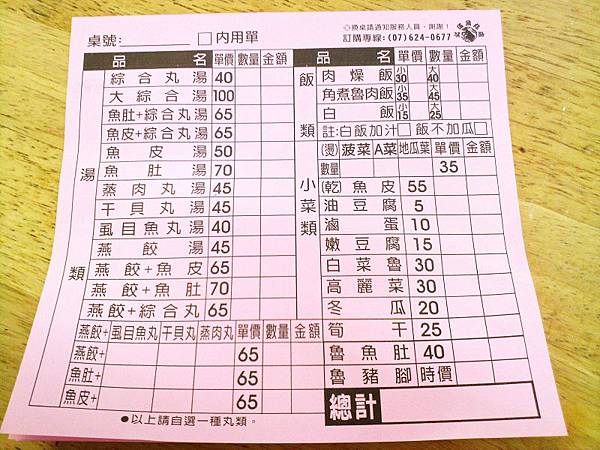 桌號:
內用單
心換桌請通知服務人員，謝謝！
訂購專線:(07)624-0677
品 名 單價 數量 金額
湯類
綜合丸湯 40
大綜合湯 100
魚肚+綜合丸湯 65
魚皮+綜合丸湯 65
魚皮湯 50
魚肚湯 70
蒸肉丸湯 45
干貝丸湯 45
虱目魚丸湯 40
燕餃湯 45
燕餃+魚皮 65
燕餃+魚肚 70
燕餃+綜合丸 65
燕餃+ 虱目魚丸 干貝丸 蒸肉丸 單價 數量 金額
燕餃+ 65
魚肚+ 65
魚皮+ 65
●以上請自選一種丸類。
品 名 單價 數量 金額
飯類
肉燥飯 小30 大40
角煮魯肉飯 小35 大45
白飯 小15 大25
註:白飯加汁 飯不加瓜
小菜類
(燙) 菠菜 A菜 地瓜葉 單價 金額
數量 35
(乾)魚皮 55
油豆腐 5
滷蛋 10
嫩豆腐 15
白菜魯 30
高麗菜 30
冬瓜 20
筍干 25
魯魚肚 40
魯豬腳 時價
總計